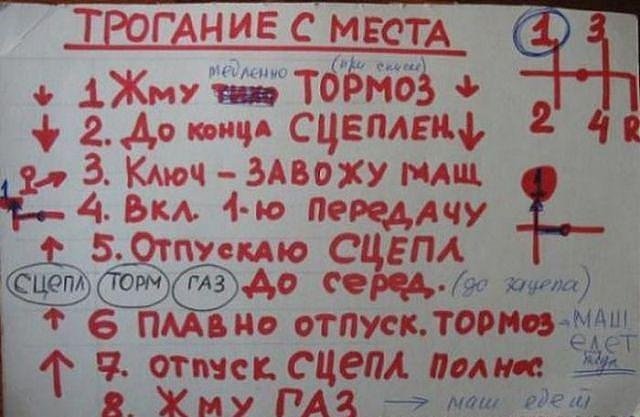 ТРОГАНИЕ С МЕСТА
медленно (при спуске)
1 Жму ТИХО ТОРМОЗ
2. До конца СЦЕПЛЕН.
3. Ключ - ЗАВОЖУ МАШ
4. Вкл. 1-ю передачу
5. Отпускаю СЦЕПЛ
СЦЕПЛ ТОРМ ГАЗ До серед. (до зацепа)
6 ПЛАВНО отпуск. ТОРМОЗ - МАШ едет
7. отпуск. СЦЕПЛ полнос.
8. Жму ГАЗ → маш едет
1 3
2 4 R
1
1